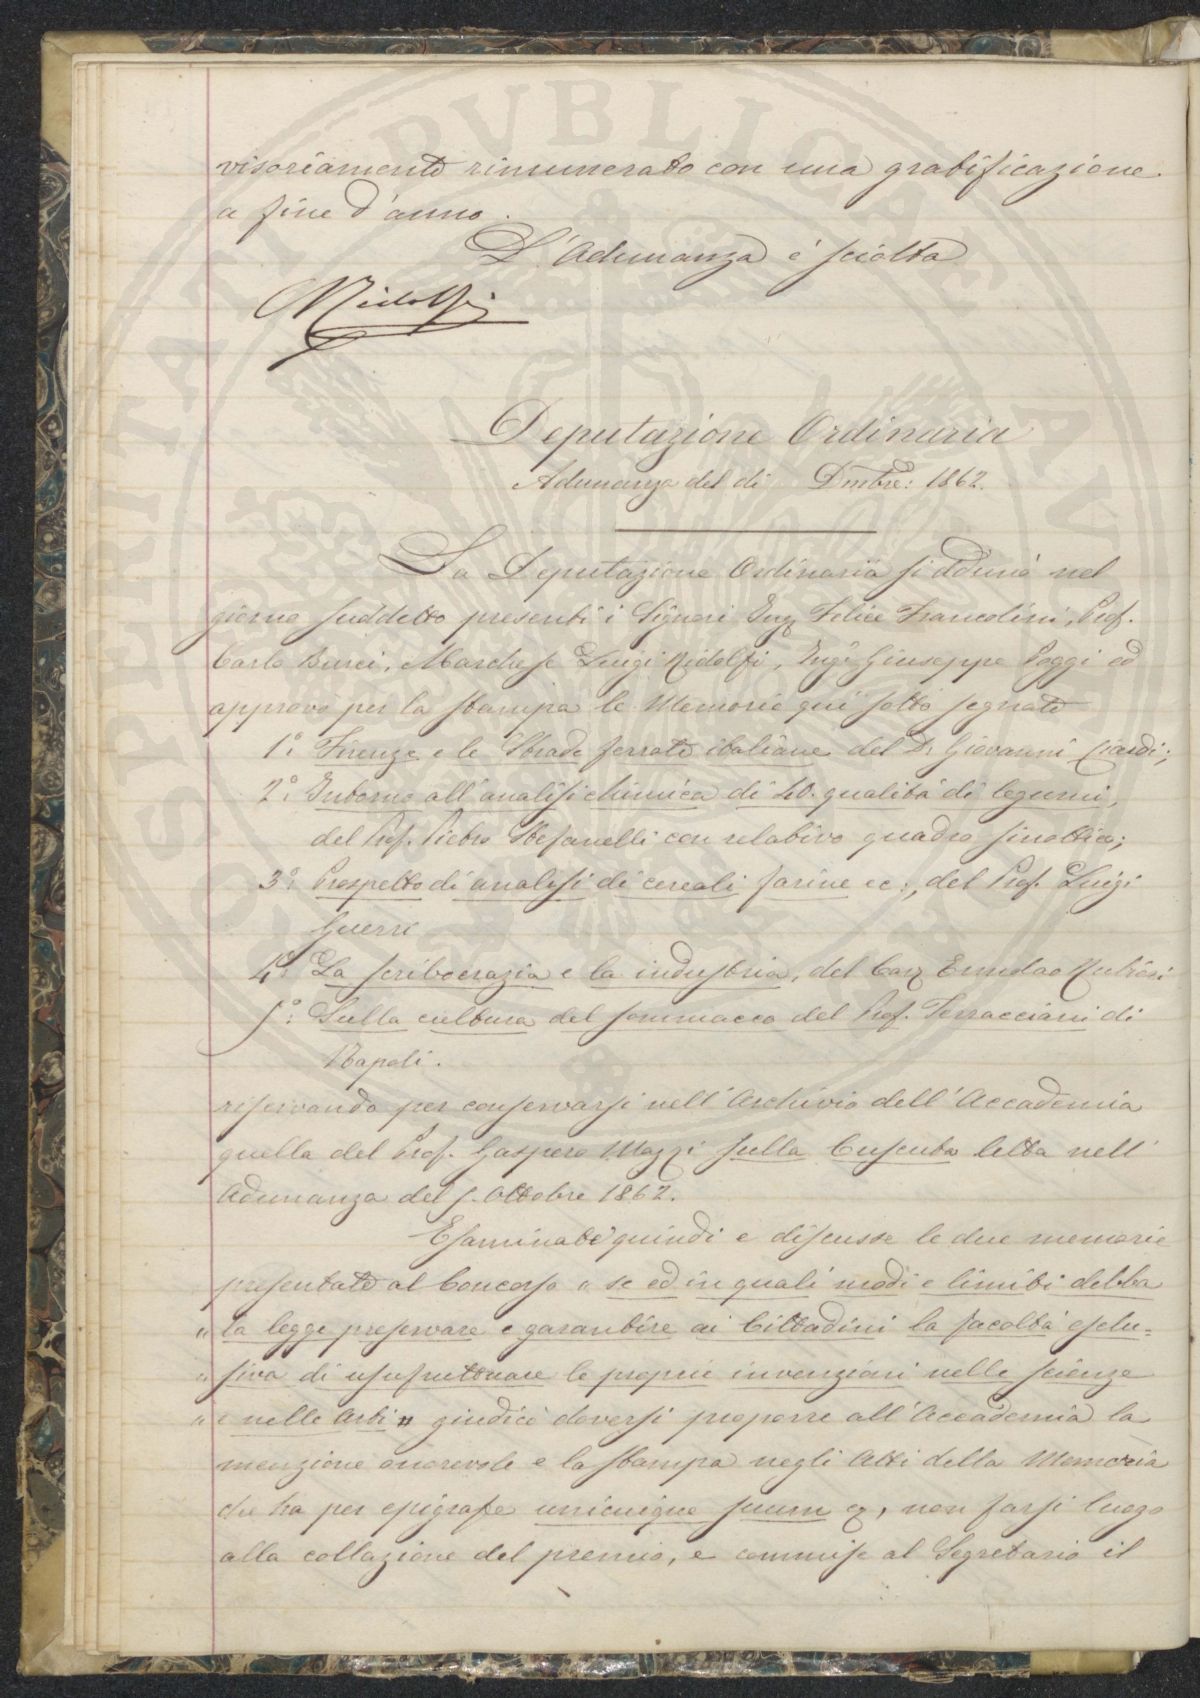 visoriamente rimunerato con una gratificazione
a fine d'anno.
L'Adunanza è sciolta
Ridolfi
Deputazione Ordinaria
Adunanza del dì Dmbre: 1862.
La Deputazione Ordinaria si adunò nel
giorno suddetto presenti i Signori Ing Felice Francolini, Prof.
Carlo Burci, Marchese Luigi Ridolfi, Inge Giuseppe Poggi ed
approvò per la stampa le Memorie quì sotto segnate
1.° Firenze e le Strade ferrate italiane del Dr Giovanni Ciardi;
2.° Intorno all'analisi chimica di 40. qualità di legumi,
del Prof. Pietro Stefanelli con relativo quadro sinottico;
3.° Prospetto di analisi di cereali farine ec:, del Prof. Luigi
Guerri
4.° La scribocrazia e la industria, del Cav Rubieri
5.° Sulla cultura del sommacco del Prof. Terracciani di
Napoli.
riservando per conservarsi nell'Archivio dell'Accademia
quella del Prof. Gaspero Mazzi sulla Cuscuta letta nell'
Adunanza del 5. Ottobre 1862.
Esaminate quindi e discusse le due memorie
presentate al Concorso " se ed in quali modi e limiti debba
" la legge preservare e garantire ai Cittadini la facoltà esclu=
" siva di usufruttuare le proprie invenzioni nelle scienze
" e nelle arti " giudicò doversi proporre all'Accademia la
menzione onorevole e la stampa negli Atti della Memoria
che ha per epigrafe unicuique suum, non farsi luogo
alla collazione del premio, e commise al Segretario il
SOSPERITATI PVBLICAE AVGENDAE